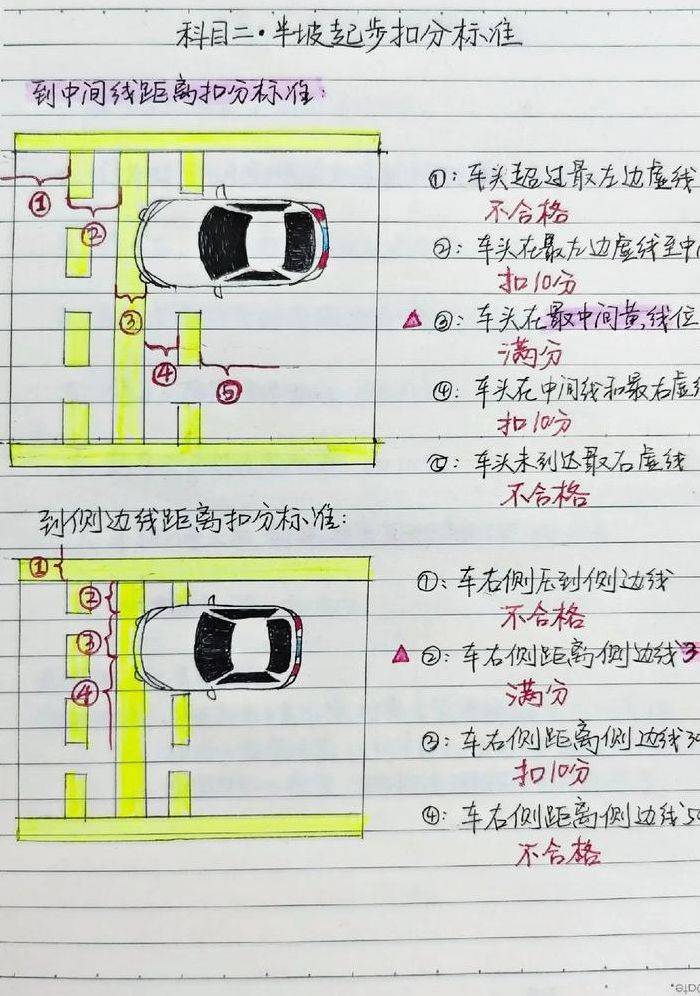 科目二·半坡起步扣分标准
到中间线距离扣分标准:
①
②
③
④
⑤
①: 车头超过最左边虚线
不合格
②: 车头在最左边虚线至中
扣10分
③: 车头在最中间黄线位
满分
④: 车头在中间线和最右虚
扣10分
⑤: 车头未到达最右虚线
不合格
到侧边线距离扣分标准:
①
②
③
④
①: 车右侧压到侧边线
不合格
②: 车右侧距离侧边线3
满分
③: 车右侧距离侧边线30
扣10分
④: 车右侧距离侧边线50
不合格